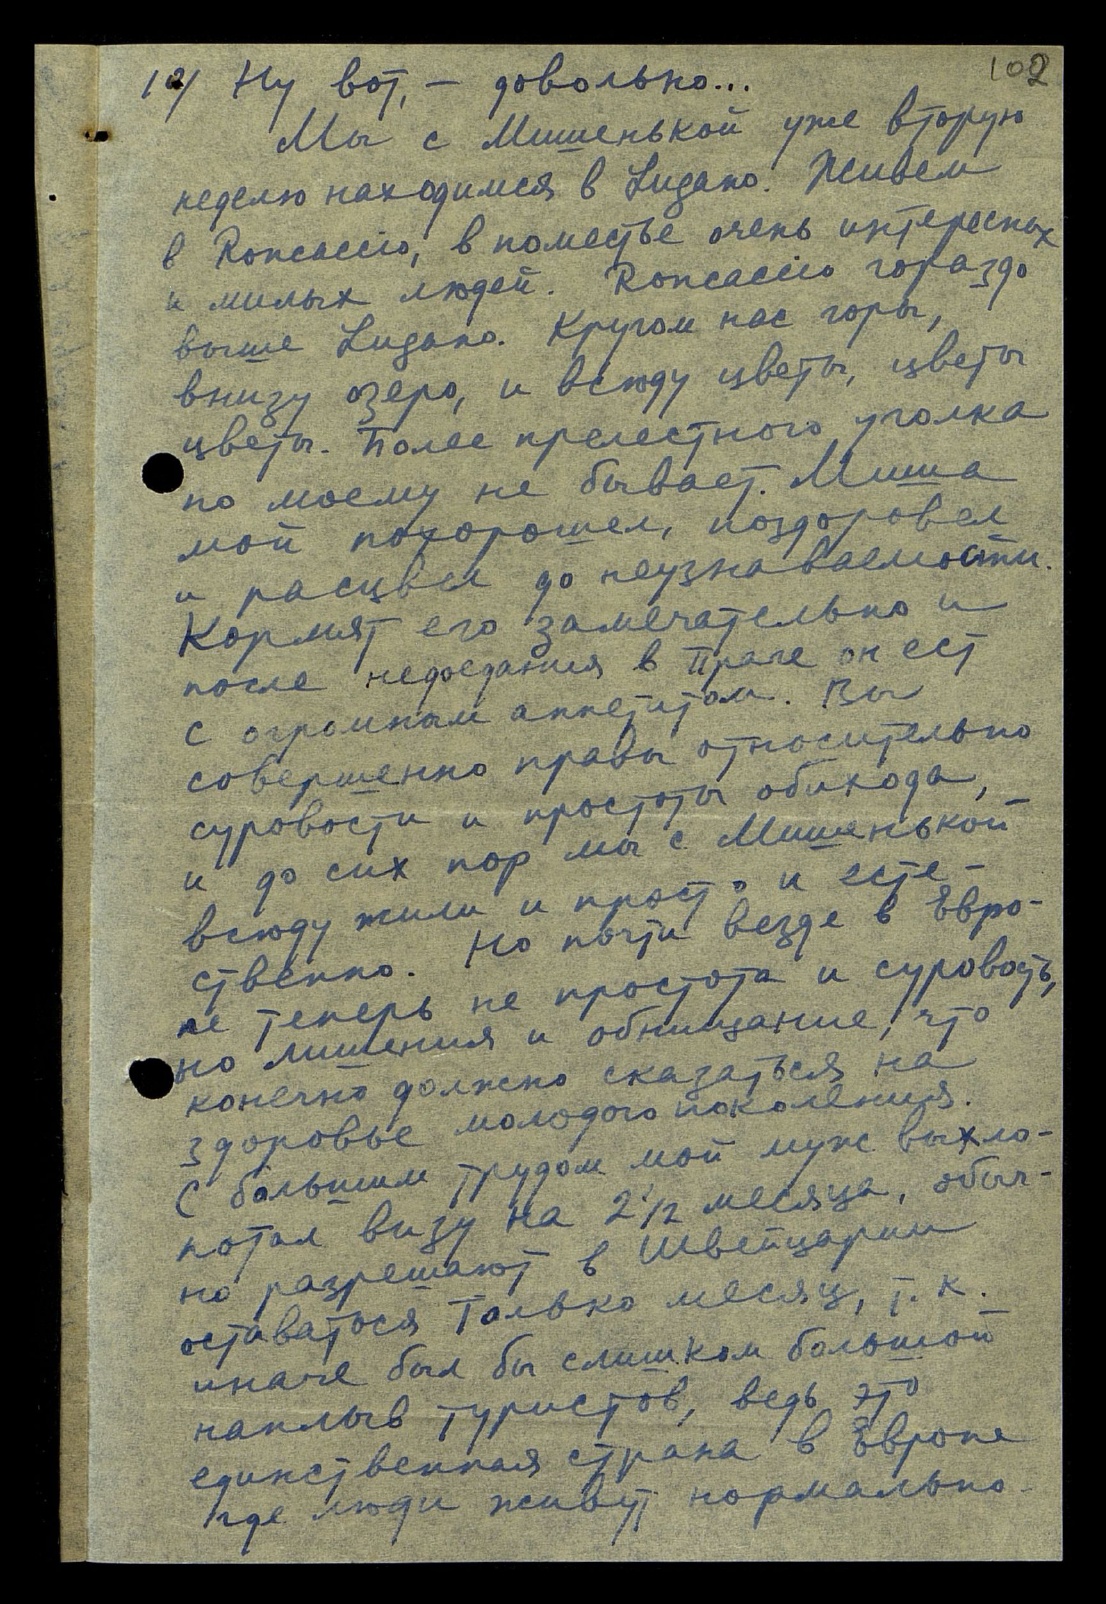 102
12/ Ну вот, – довольно...
Мы с Мишенькой уже вторую
неделю находимся в Lugano. Живем
в Roncaccio, в поместье очень интересных
и милых людей. Roncaccio гораздо
выше Lugano. Кругом нас горы,
внизу озеро, и всюду цветы, цветы
цветы. Более прелестного уголка
по моему не бывает. Миша
мой похорошел, поздоровел
и расцвел до неузнаваемости.
Кормят его замечательно и
после недоедания в Праге он ест
с огромным аппетитом. Вы
совершенно правы относительно
суровости и простоты обихода,
и до сих пор мы с Мишенькой
всюду жили и просто и есте-
ственно. Но почти везде в Евро-
пе теперь не простота и суровость,
но лишения и обнищание, что
конечно должно сказаться на
здоровье молодого поколения.
С большим трудом мой муж выхло-
потал визу на 2 1/2 месяца, обыч-
но разрешают в Швейцарии
оставаться только месяц, т. к.
иначе был бы слишком большой
наплыв туристов, ведь это
единственная страна в Европе
где люди живут нормально.